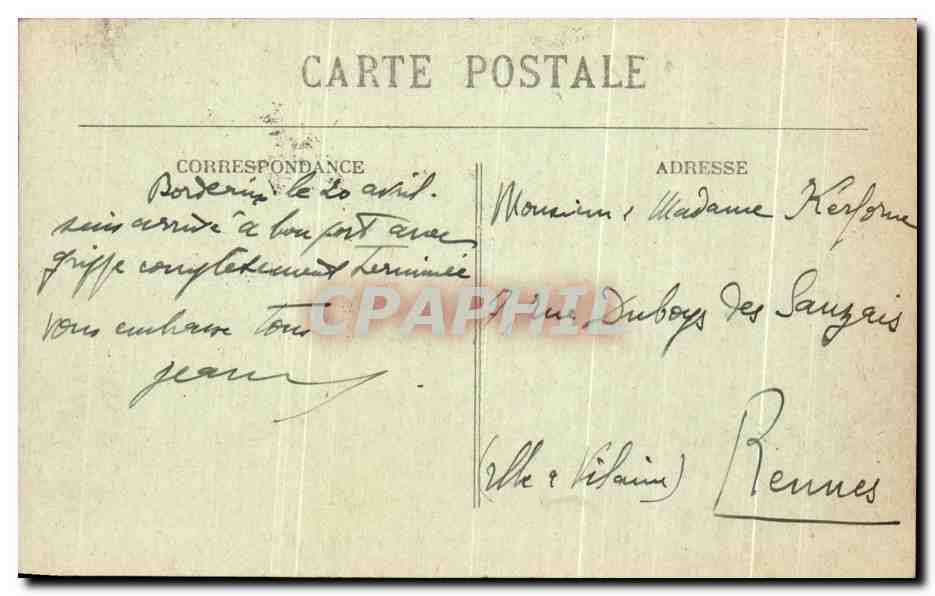 CARTE POSTALE
CORRESPONDANCE
le 20 avril.
suis arrivé à bon port avec
grippe complètement terminée
vous embrasse tous
jean
ADRESSE
Monsieur & Madame Kerforne
rue Duboys des Sauzais
(Ille & Vilaine)
Rennes
CPAPHIL